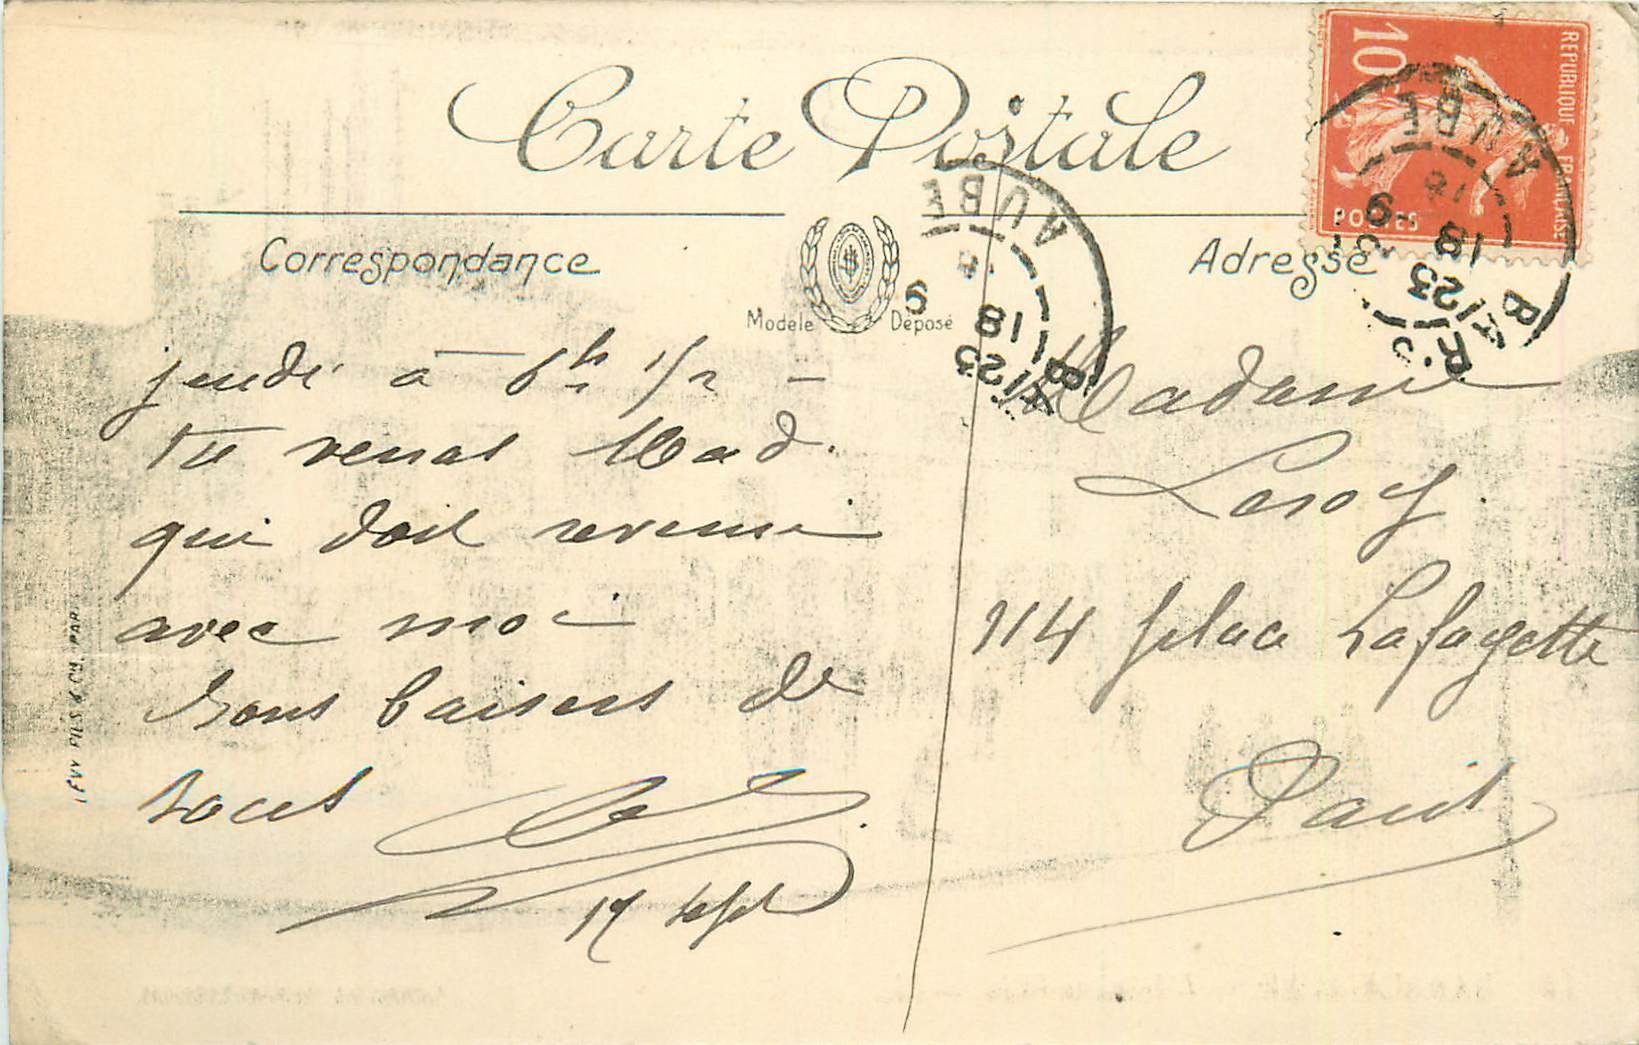 Carte Postale
Correspondance
Adresse
Modèle Déposé
REPUBLIQUE FRANÇAISE
10
POSTES
AUBE
18
9
AUBE
18
9
jeudi à 6h 1/2 –
tu verras Mad.
qui doit revenir
avec moi
bons baisers de
tous
17 sept
Madame
Leroy.
114 place Lafayette
Paris
LEVY FILS & Cie, PARIS